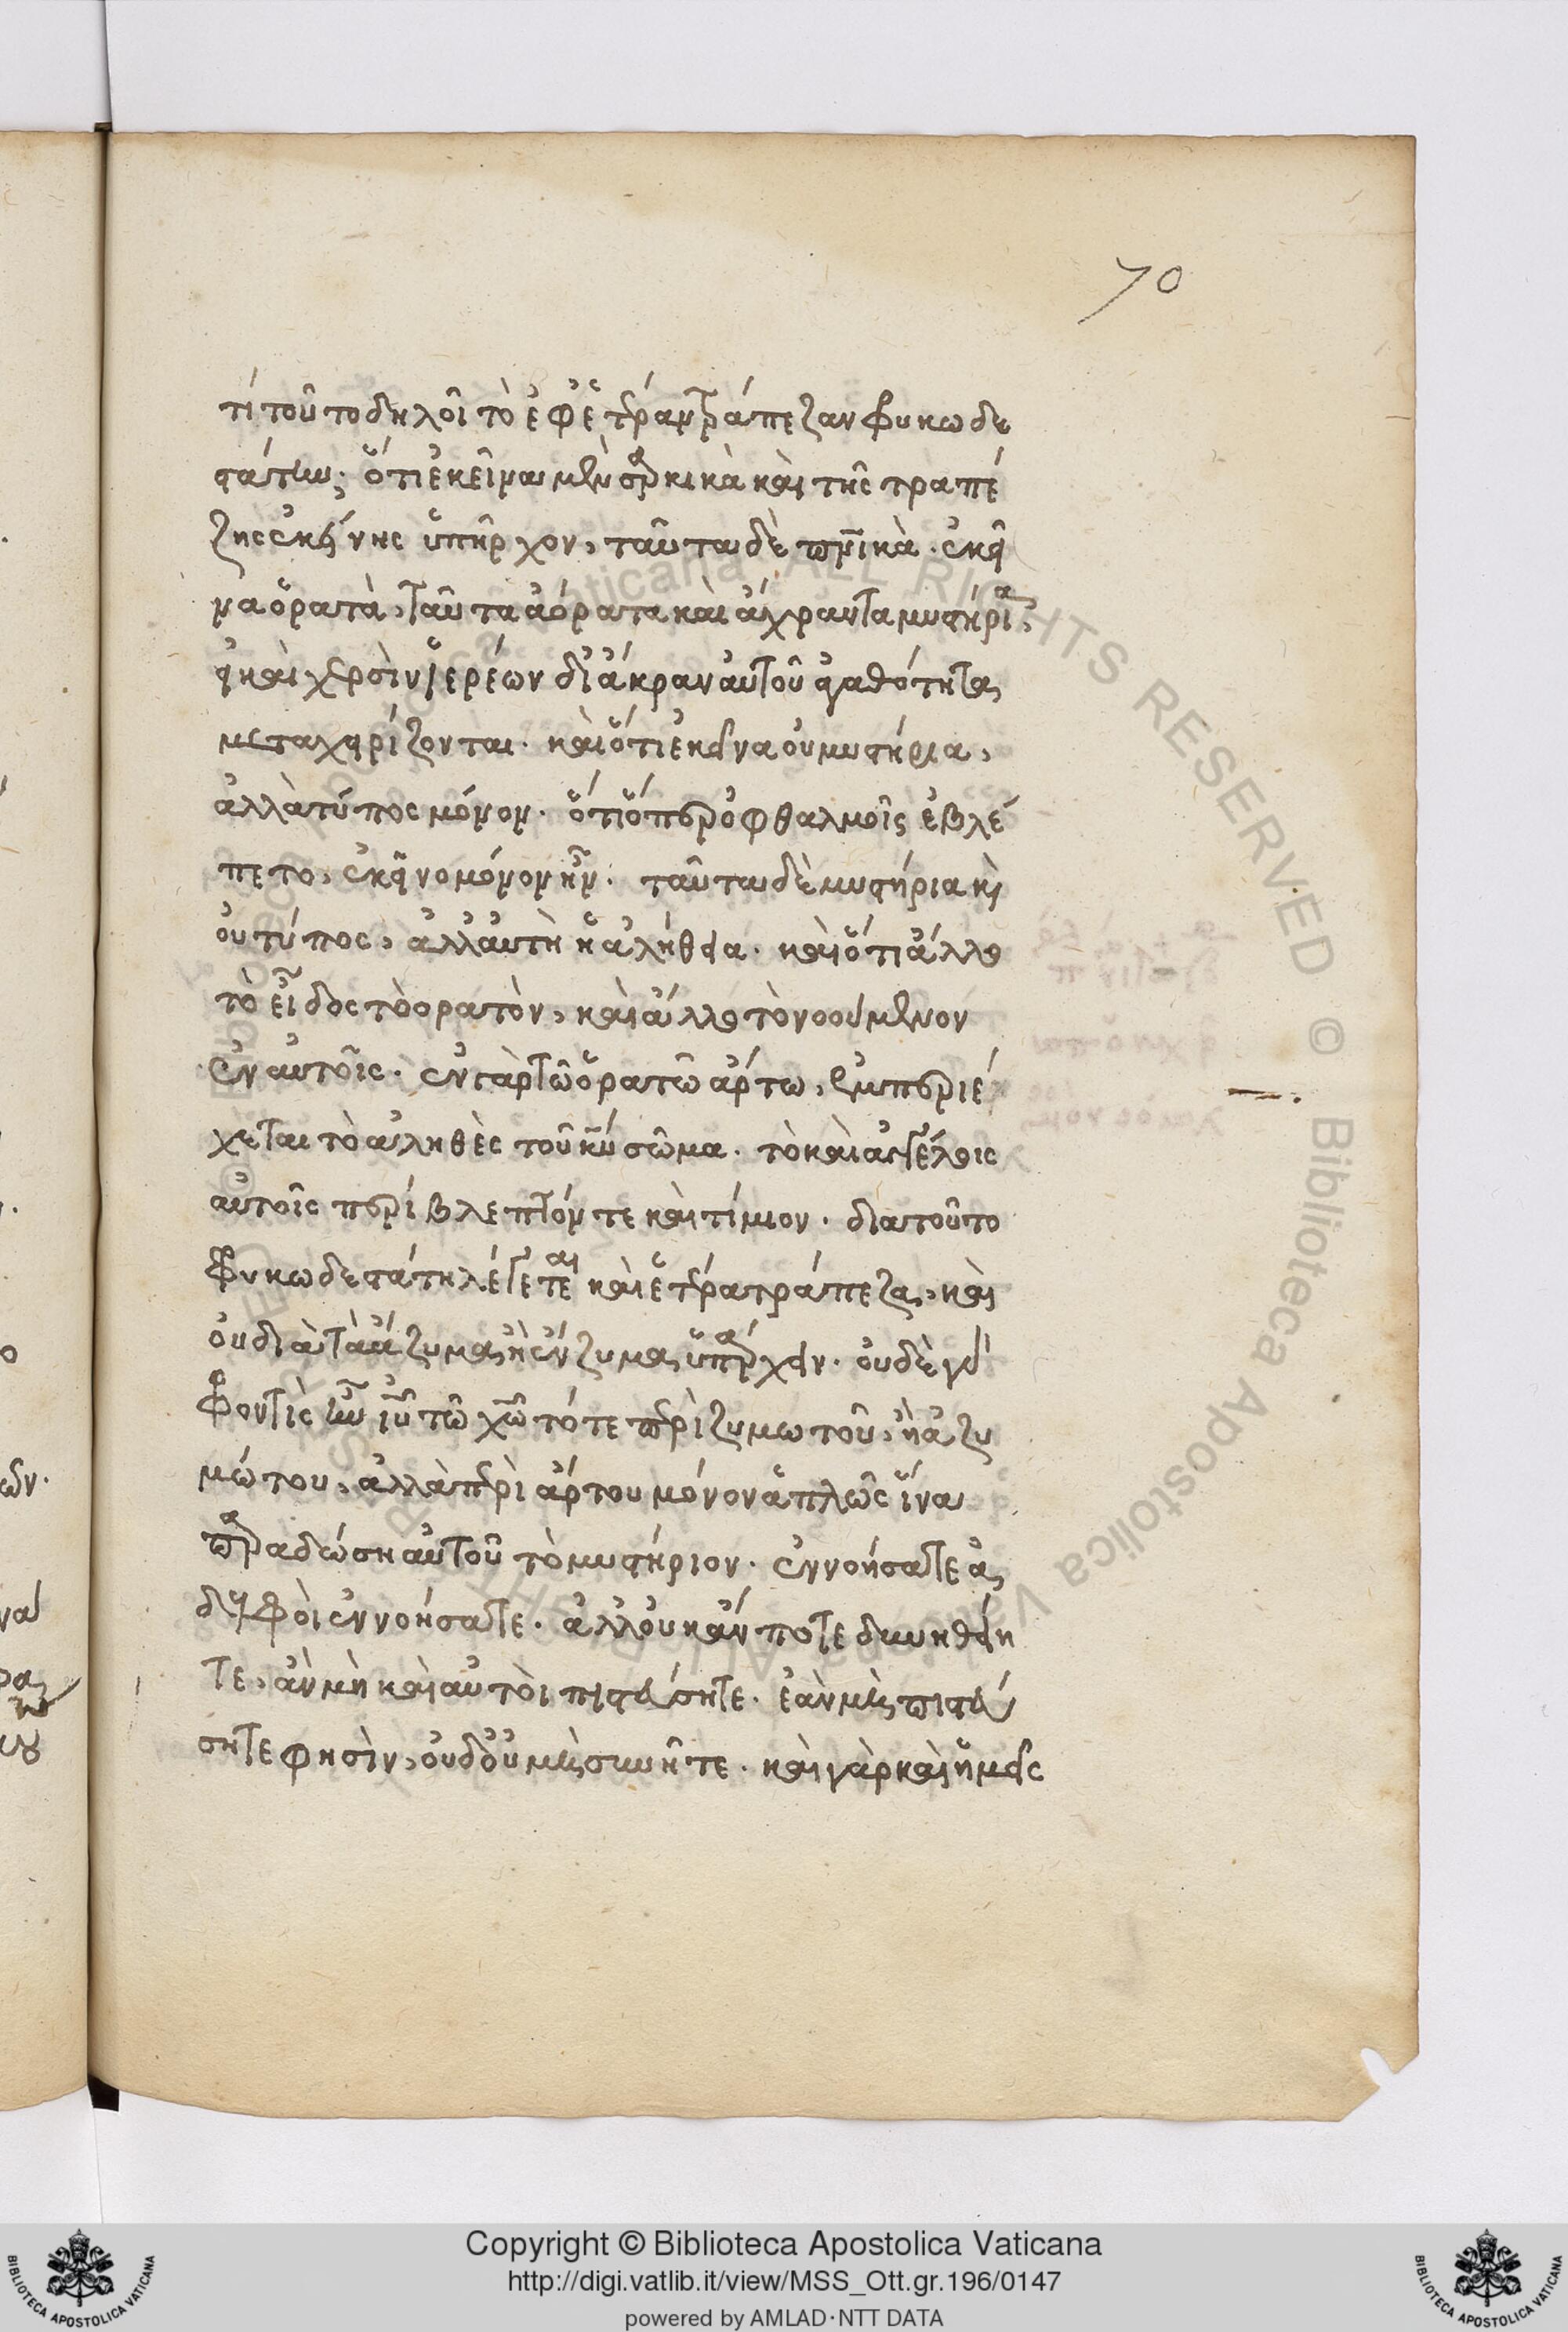 70
τί τοῦτο δηλοῖ τὸ ἐφ' ἑτέραν τράπεζαν φρικωδε
στάτην; ὅτι ἐκεῖνα μὲν σαρκικὰ καὶ τῆς τραπέ
ζης ἐκείνης ὑπῆρχον, ταῦτα δὲ πνικὰ. ἐκεῖ
να ὁρατὰ, ταῦτα ἀόρατα καὶ ἄχραντα μυστήρια,
εἰ καὶ χερσὶν ἱερέων δι' ἄκραν αὐτοῦ ἀγαθότητα
μεταχειρίζονται. καὶ ὅτι ἐκείνα οὐ μυστήρια,
ἀλλὰ τύπος μόνον. ὅτι ὅπερ ὀφθαλμοῖς ἐβλέ
πετο, ἐκεῖνο μόνον ἦν. ταῦτα δὲ μυστήρια καὶ
οὐ τύπος, ἀλλ' αὐτὴ ἡ ἀλήθεια. καὶ ὅτι ἄλλο
τὸ εἶδος τὸ ορατὸν, καὶ ἄλλο τὸ νοούμενον
ἐν αὐτοῖς. ἐν γὰρ τῶ ὁρατῶ ἄρτω, ἐμπεριέ
χεται τὸ ἀληθὲς τοῦ κυ σῶμα. τὸ καὶ ἀγγέλοις
αὐτοῖς περίβλεπτόν τε καὶ τίμιον. διατοῦτο
φρικωδεστάτη λέγεται καὶ ἑτέρα τράπεζα, καὶ
οὐ διὰ τὰ ἄζυμα, ἢ ἔνζυμα ὑπάρχειν. οὐδὲ γὰρ
φροντὶς ἦν ιυ τῶ χω τότε περὶ ζυμωτοῦ, ἢ ἀζυ
μώτου, ἀλλὰ περὶ ἄρτου μόνον ἁπλῶς ἵνα
παραδώση αὐτοῦ τὸ μυστήριον. ἐννοήσατε ἀ
δελφοὶ ἐννοήσατε. ἀλλ' οὐκ ἄν ποτε δυνηθείη
τε, ἂν μὴ καὶ αὐτοὶ πιστεύσητε. ἐὰν μὴ πιστεύ
σητε φησὶν, οὐδ' οὐ μὴ συνῆτε. καὶ γὰρ καὶ ἡμεῖς
Copyright © Biblioteca Apostolica Vaticana
http://digi.vatlib.it/view/MSS_Ott.gr.196/0147
powered by AMLAD·NTT DATA